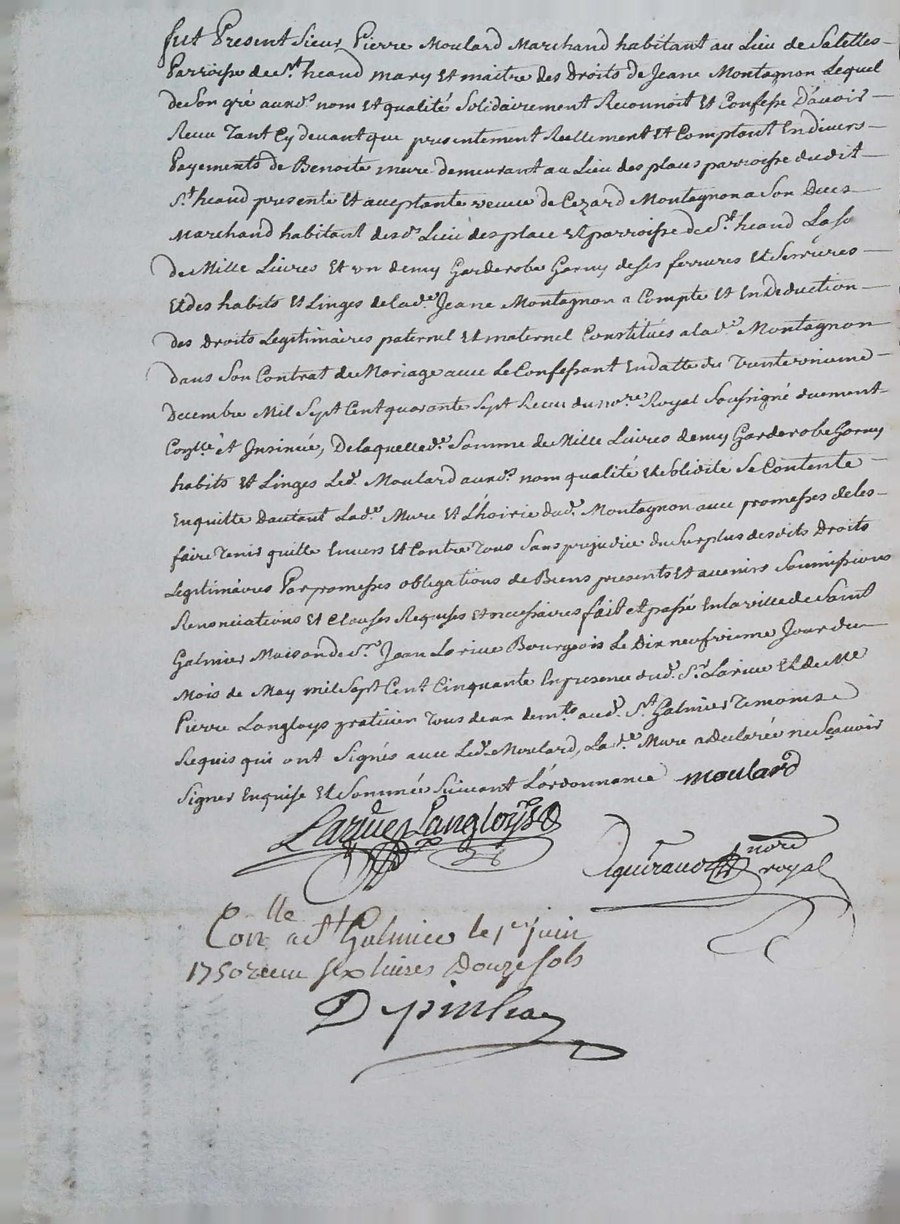 fut Present Sieur Pierre Moulard Marchand habitant au Lieu de Salettes
Parroisse de St. heand mary et maitre des Droits de Jeane Montagnon Lequel
de Son gré auxds. nom et qualité Solidairement Reconnoit et Confesse D'avoir
Receu Tant Cy devant que presentement Reellement et Comptant En divers
Payements de Benoite mure demeurant au Lieu des places parroisse dudit
St. heand presente et acceptante veuve de Cezard Montagnon a Son Deces
Marchand habitant desd. Lieu des place et parroisse de St. heand La so
de Mille Livres et un demy Garderobe Garny de ses ferrures et Serrures
et des habits et Linges de lade. Jeane Montagnon a Compte et En Deduction
des Droits Legitimaires paternel et maternel Constitués a lade. Montagnon
dans Son Contrat de Mariage avec Le Confessant En datte du Trente unieme
Decembre Mil Sept Cent quarante Sept Receu du nore. Royal Soussigné duement
Conllé et Insinué, De laquelle de. Somme de Mille Livres demy Garderobe Garny
habits et Linges Led. Moulard auxds. nom qualité et solidité Se Contente
En quitte Dautant Lade. Mure et L'hoirie dud. Montagnon avec promesses de les
faire Tenir quitte Envers et Contre Tous Sans prejudice du Surplus desdits Droits
Legitimaires Par promesses obligations de Biens presents et avenirs Soumissions
Renonciations et Clauses Requises et necessaires fait et passé En la ville de Saint
Galmier Maison de Sr. Jean Larüe Bourgeois Le Dix neufvieme Jour du
Mois de May mil Sept Cent Cinquante En presence dud. Sr. Larüe et de Me
Pierre Langloys praticien Tous deux demts. aud. St. Galmier Temoins
Requis qui ont Signés avec Led. Moulard, La de. Mure a declarée ne Sçavoir
Signer Enquise et Sommée Suivant L'ordonnance moulard
Larüe Langloys
nore
royal
Conlle a St Galmier le 1er juin
1750 receu six livres Douze sols